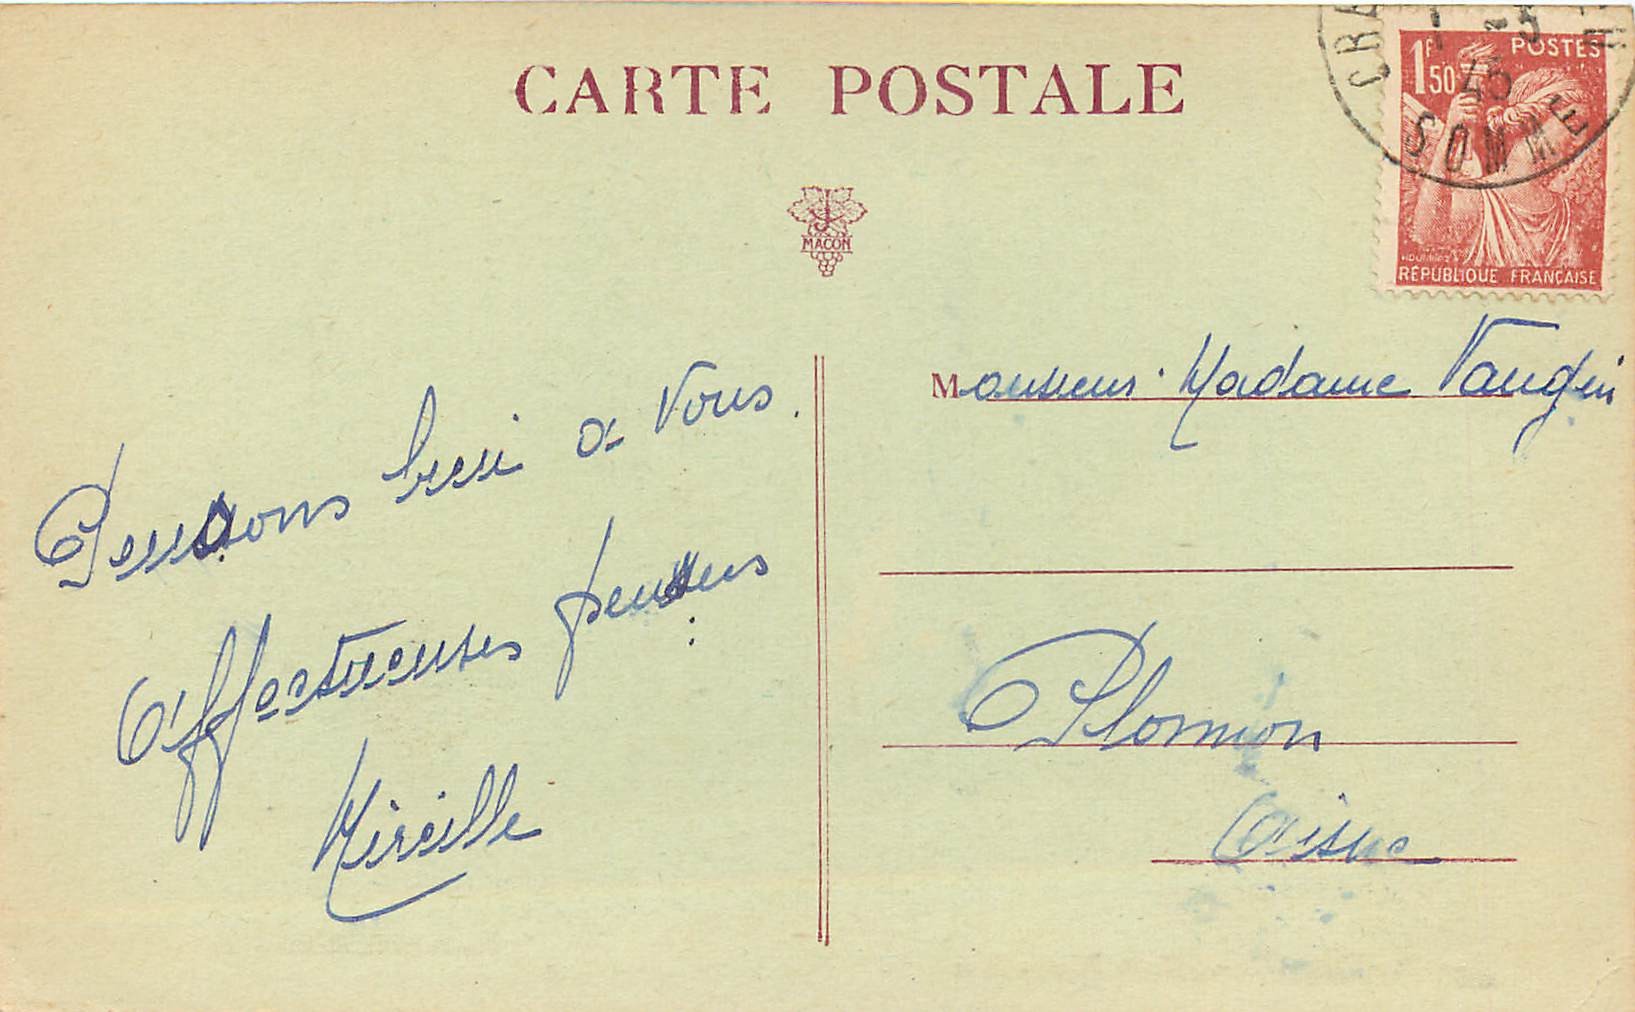 CARTE POSTALE
MACON
1F50 POSTES
RÉPUBLIQUE FRANÇAISE
SOMME
45
Pensons bien à Vous.
Affectueuses pensées
Mireille
Monsieur Madame Vaugin
Plomion
Aisne